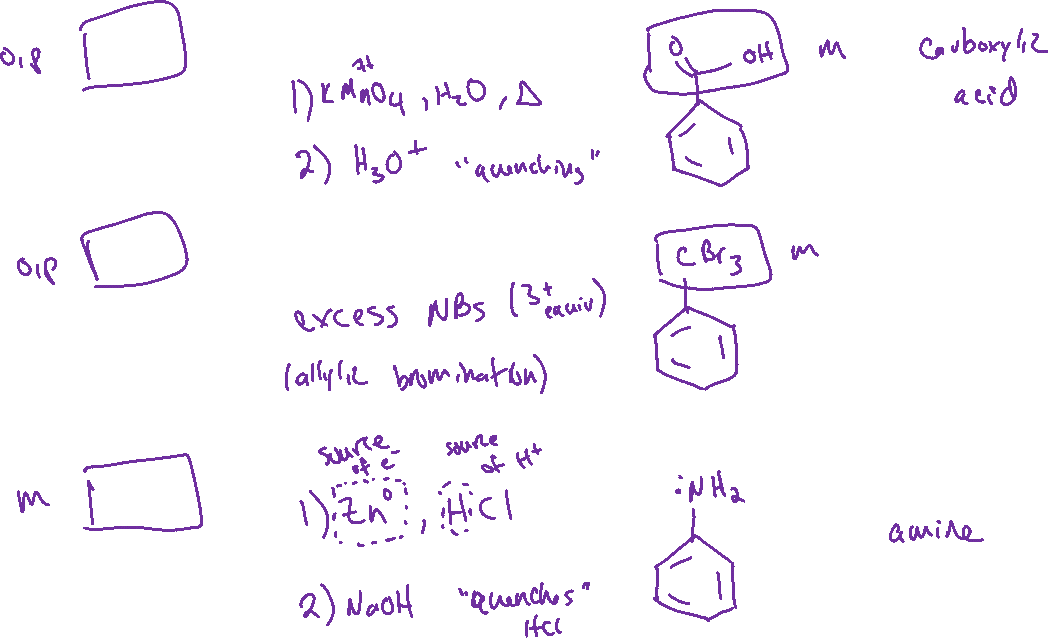 o,p
1) KMnO4, H2O, Δ
7+
2) H3O+ "quenching"
O OH
m
Carboxylic
acid
o,p
excess NBS (3+ equiv)
(allylic bromination)
CBr3
m
m
source of e-
source of H+
1) Zn0, HCl
2) NaOH "quenches"
HCl
:NH2
amine